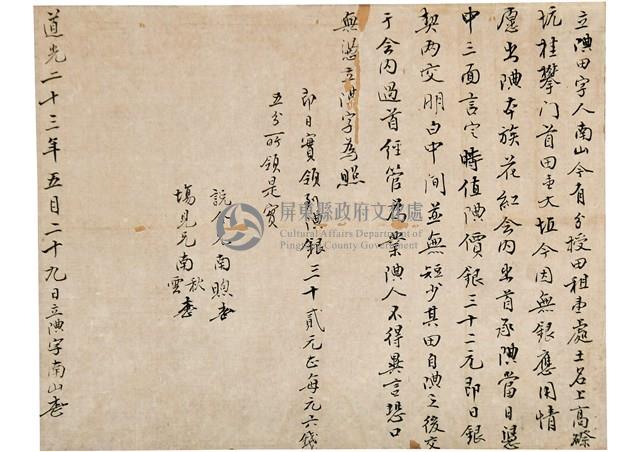 立典田字人南山今有分授田租壹處土名上高際
坑桂攀门首田壹大坵今因無銀應用情
愿出典本族花紅会内出首承典當日憑
中三面言定時值典價銀三十二元即日銀
契两交明白中间並無短少其田自典之後交
于会内過首经管為業典人不得異言恐口
無憑立典字為照
即日實領到典銀三十贰元正每元六錢
五分所領是實
説合人南照
塲見兄南秋
雲
道光二十三年五月二十九日立典字南山
屏東縣政府文化處
Cultural Affairs Department of
Pingtung County Government